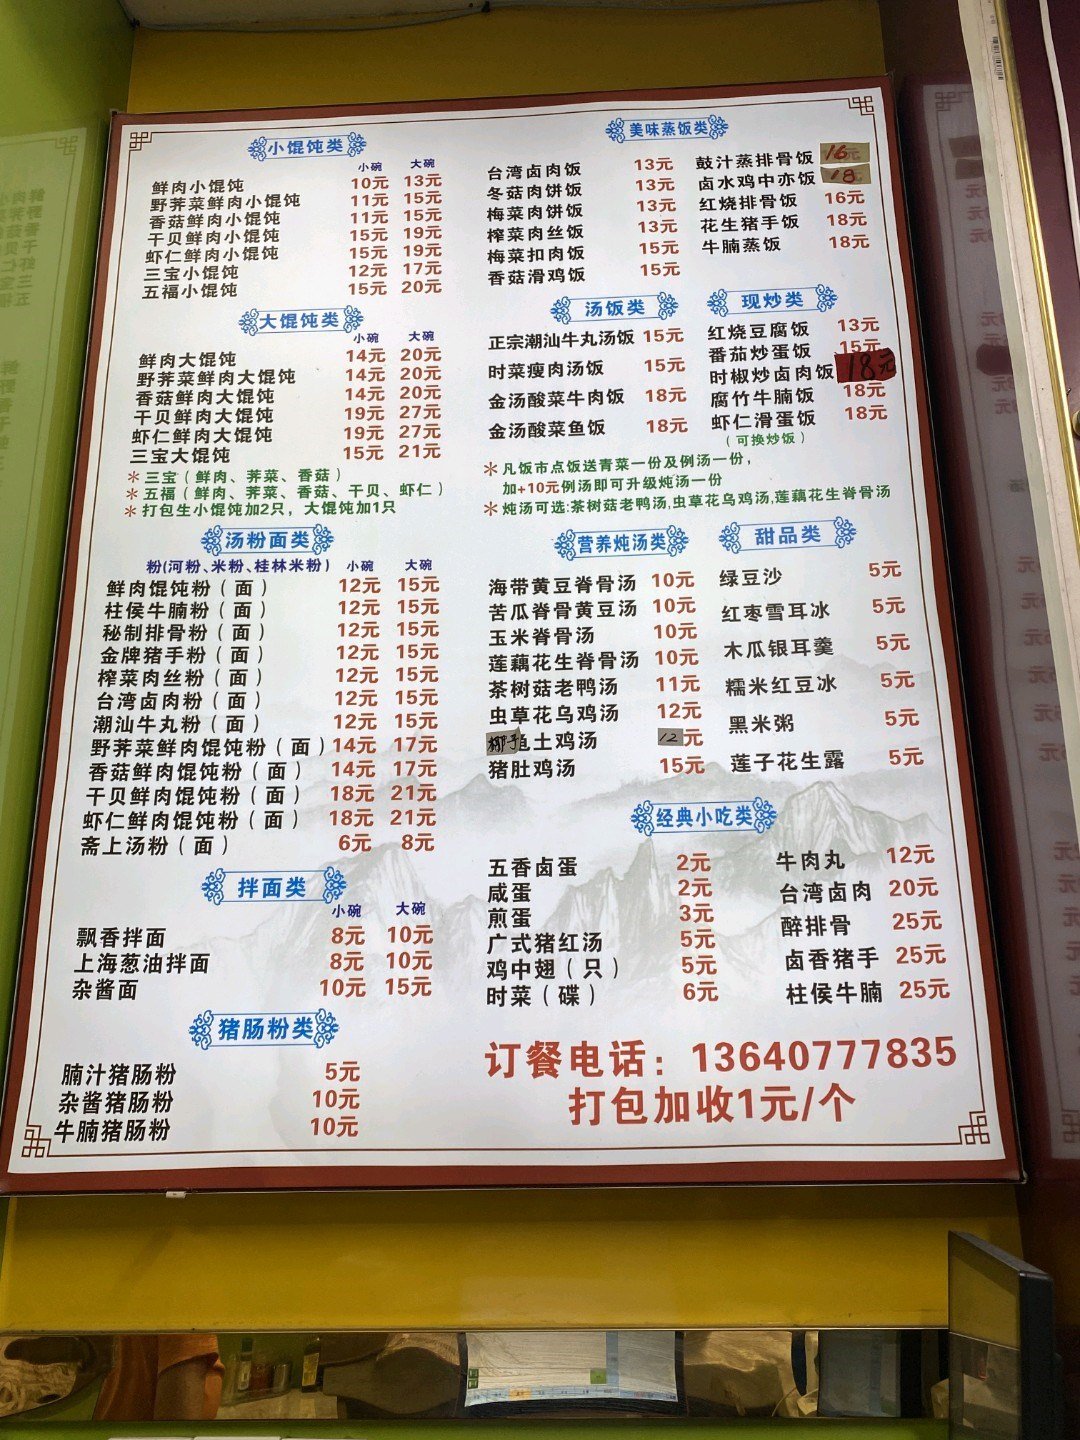 小馄饨类
小碗 大碗
鲜肉小馄饨 10元 13元
野荠菜鲜肉小馄饨 11元 15元
香菇鲜肉小馄饨 11元 15元
干贝鲜肉小馄饨 15元 19元
虾仁鲜肉小馄饨 15元 19元
三宝小馄饨 12元 17元
五福小馄饨 15元 20元
大馄饨类
小碗 大碗
鲜肉大馄饨 14元 20元
野荠菜鲜肉大馄饨 14元 20元
香菇鲜肉大馄饨 14元 20元
干贝鲜肉大馄饨 19元 27元
虾仁鲜肉大馄饨 19元 27元
三宝大馄饨 15元 21元
*三宝（鲜肉、荠菜、香菇）
*五福（鲜肉、荠菜、香菇、干贝、虾仁）
*打包生小馄饨加2只，大馄饨加1只
汤粉面类
粉(河粉、米粉、桂林米粉) 小碗 大碗
鲜肉馄饨粉（面） 12元 15元
柱侯牛腩粉（面） 12元 15元
秘制排骨粉（面） 12元 15元
金牌猪手粉（面） 12元 15元
榨菜肉丝粉（面） 12元 15元
台湾卤肉粉（面） 12元 15元
潮汕牛丸粉（面） 12元 15元
野荠菜鲜肉馄饨粉（面） 14元 17元
香菇鲜肉馄饨粉（面） 14元 17元
干贝鲜肉馄饨粉（面） 18元 21元
虾仁鲜肉馄饨粉（面） 18元 21元
斋上汤粉（面） 6元 8元
拌面类
小碗 大碗
飘香拌面 8元 10元
上海葱油拌面 8元 10元
杂酱面 10元 15元
猪肠粉类
腩汁猪肠粉 5元
杂酱猪肠粉 10元
牛腩猪肠粉 10元
美味蒸饭类
台湾卤肉饭 13元
冬菇肉饼饭 13元
梅菜肉饼饭 13元
榨菜肉丝饭 13元
梅菜扣肉饭 15元
香菇滑鸡饭 15元
鼓汁蒸排骨饭 16元
卤水鸡中亦饭 18
红烧排骨饭 16元
花生猪手饭 18元
牛腩蒸饭 18元
汤饭类
正宗潮汕牛丸汤饭 15元
时菜瘦肉汤饭 15元
金汤酸菜牛肉饭 18元
金汤酸菜鱼饭 18元
现炒类
红烧豆腐饭 13元
番茄炒蛋饭 15元
时椒炒卤肉饭 18元
腐竹牛腩饭 18元
虾仁滑蛋饭 18元
（可换炒饭）
*凡饭市点饭送青菜一份及例汤一份，
加+10元例汤即可升级炖汤一份
*炖汤可选:茶树菇老鸭汤,虫草花乌鸡汤,莲藕花生脊骨汤
营养炖汤类
海带黄豆脊骨汤 10元
苦瓜脊骨黄豆汤 10元
玉米脊骨汤 10元
莲藕花生脊骨汤 10元
茶树菇老鸭汤 11元
虫草花乌鸡汤 12元
椰子土鸡汤 12元
猪肚鸡汤 15元
甜品类
绿豆沙 5元
红枣雪耳冰 5元
木瓜银耳羹 5元
糯米红豆冰 5元
黑米粥 5元
莲子花生露 5元
经典小吃类
五香卤蛋 2元
咸蛋 2元
煎蛋 3元
广式猪红汤 5元
鸡中翅（只） 5元
时菜（碟） 6元
牛肉丸 12元
台湾卤肉 20元
醉排骨 25元
卤香猪手 25元
柱侯牛腩 25元
订餐电话：13640777835
打包加收1元/个